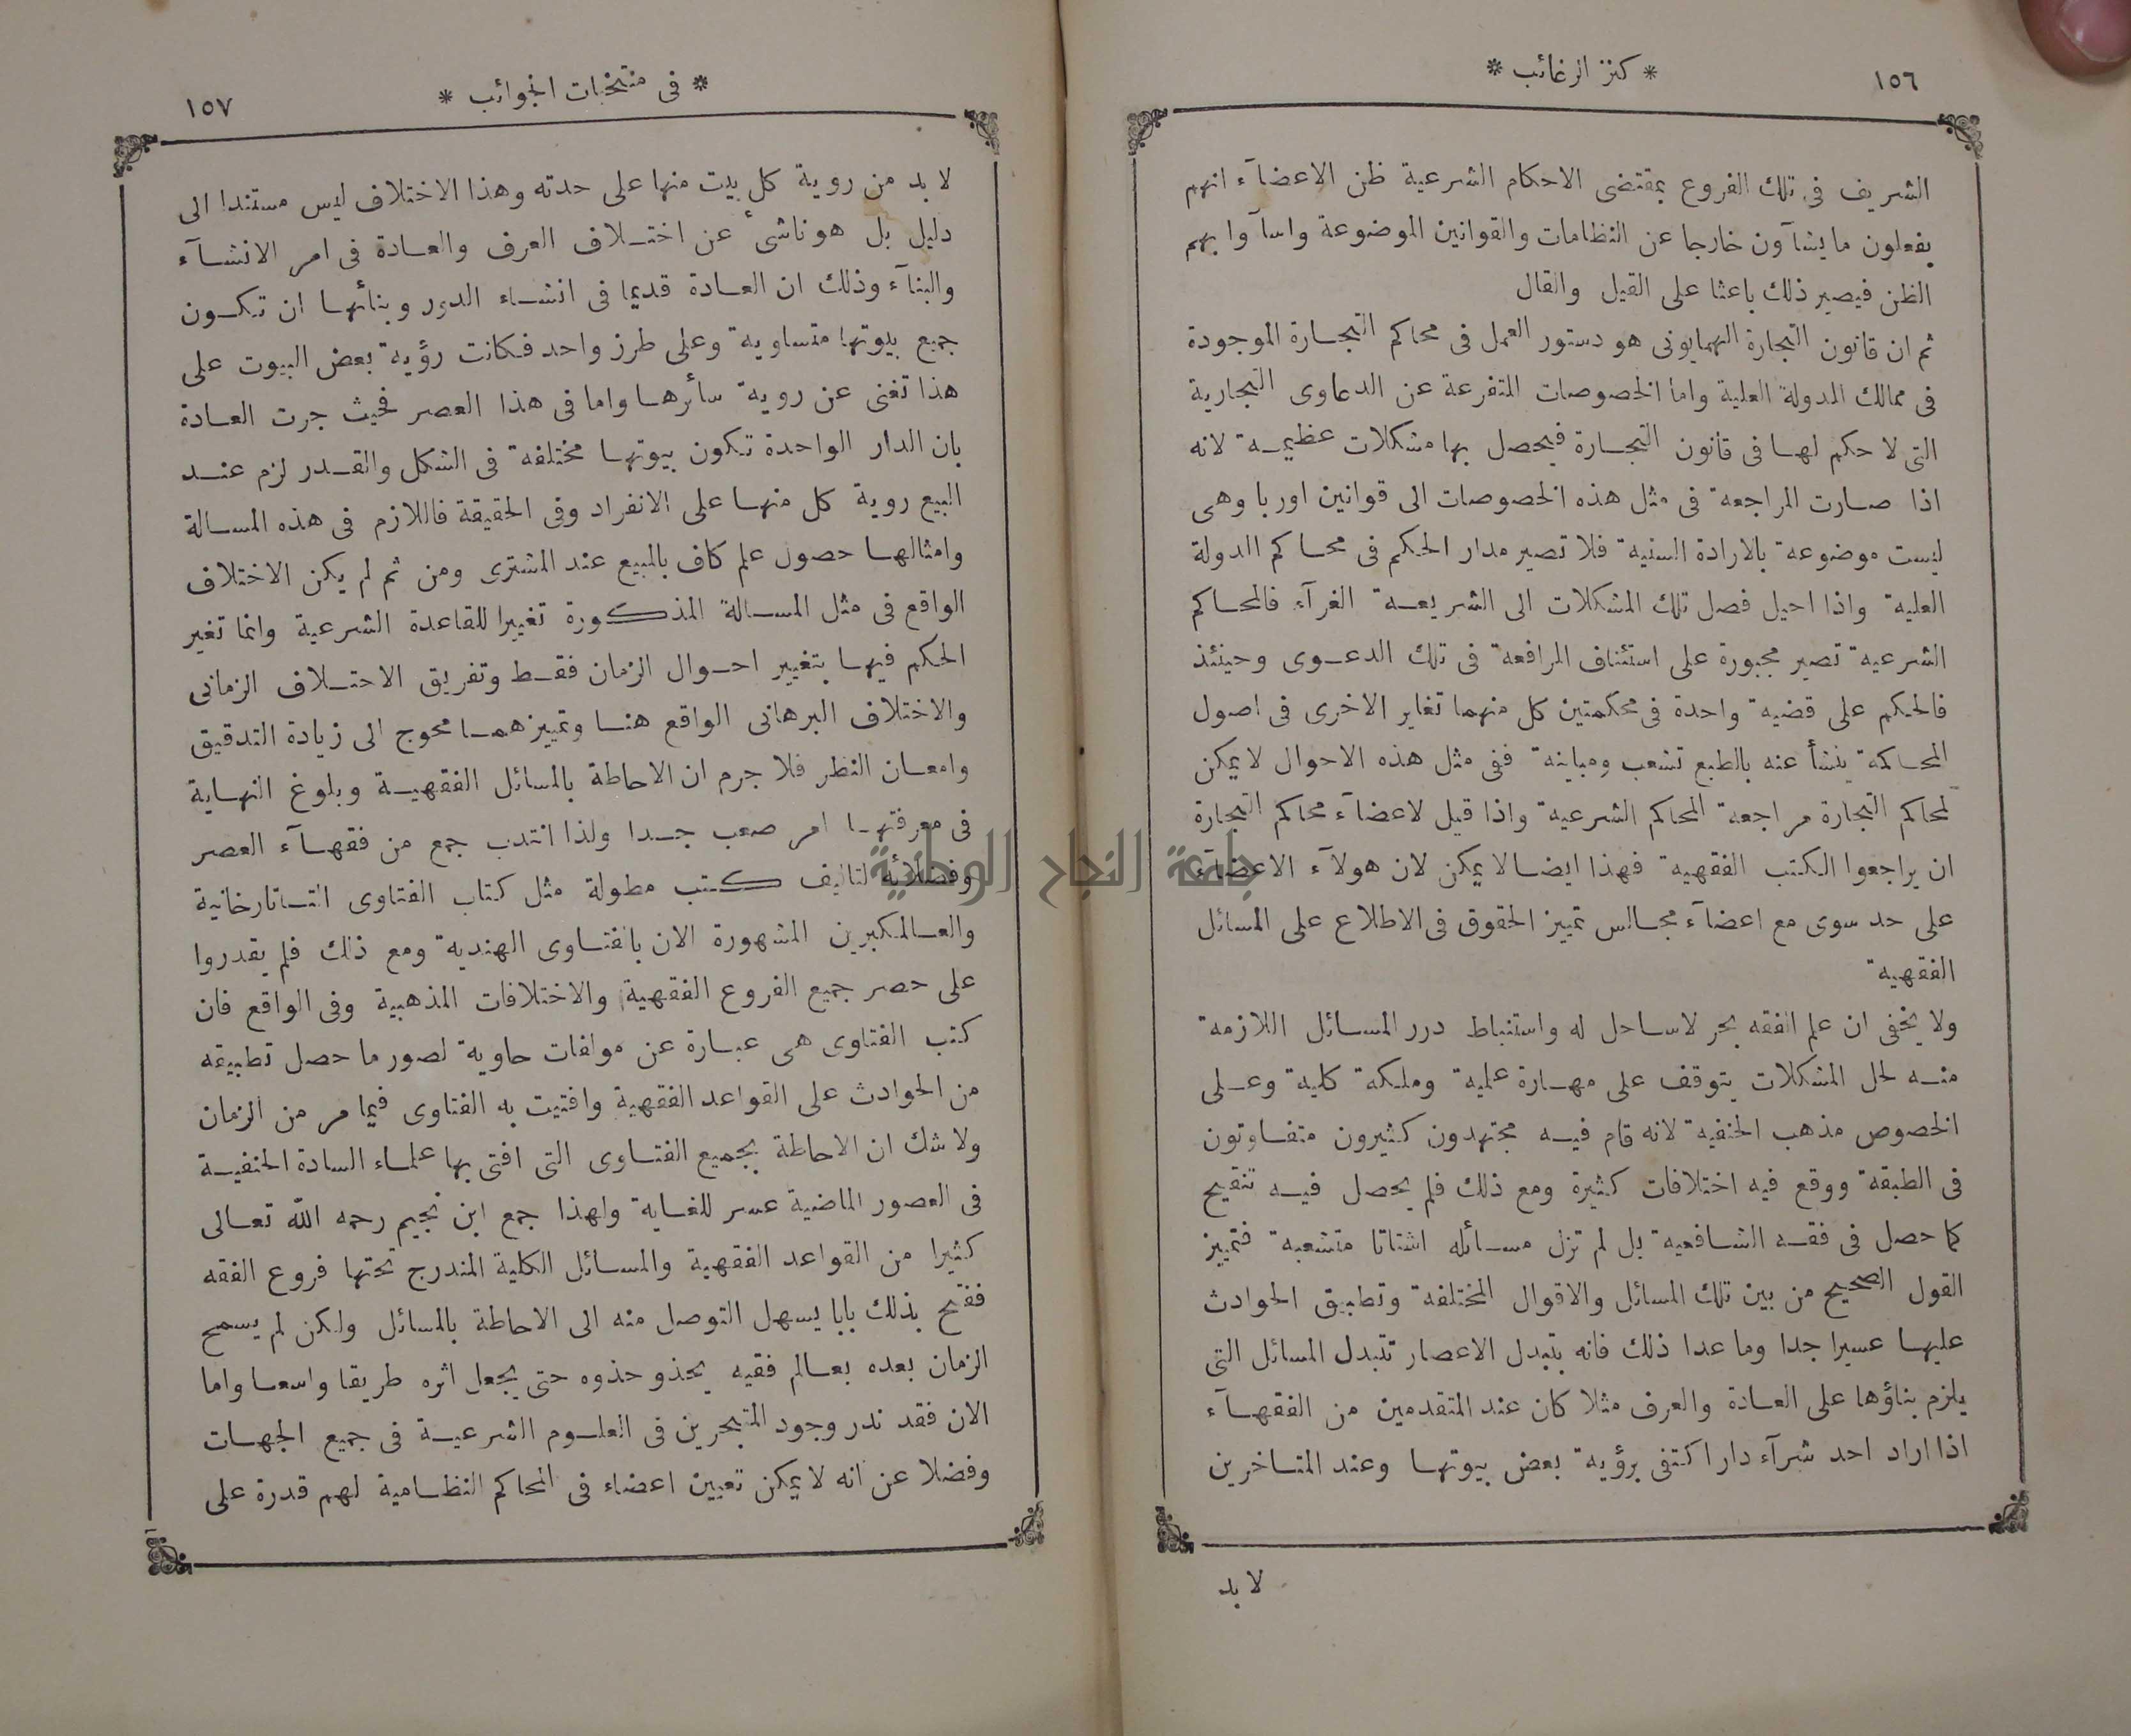 ١٥٦
* كنز الرغائب *
الشريف فى تلك الفروع بمقتضى الاحكام الشرعية ظن الاعضآء انهم
يفعلون ما يشآون خارجا عن النظامات والقوانين الموضوعة واسآوا بهم
الظن فيصير ذلك باعثا على القيل والقال
ثم ان قانون التجارة الهمايونى هو دستور العمل فى محاكم التجارة الموجودة
فى ممالك الدولة العلية واما الخصوصات المتفرعة عن الدعاوى التجارية
التى لا حكم لها فى قانون التجارة فيحصل بها مشكلات عظيمة لانه
اذا صارت المراجعة فى مثل هذه الخصوصات الى قوانين اوربا وهى
ليست موضوعة بالارادة السنية فلا تصير مدار الحكم فى محاكم الدولة
العلية واذا احيل فصل تلك المشكلات الى الشريعة الغرآء فالمحاكم
الشرعية تصير مجبورة على استئناف المرافعة فى تلك الدعوى وحينئذ
فالحكم على قضية واحدة فى محكمتين كل منهما تغاير الاخرى فى اصول
المحاكمة ينشأ عنه بالطبع تشعب ومباينة ففى مثل هذه الاحوال لا يمكن
لمحاكم التجارة مراجعة المحاكم الشرعية واذا قيل لاعضآء محاكم التجارة
ان يراجعوا الكتب الفقهية فهذا ايضا لا يمكن لان هولآء الاعضآء
على حد سوى مع اعضآء مجالس تمييز الحقوق فى الاطلاع على المسائل
الفقهية
ولا يخفى ان علم الفقه بحر لا ساحل له واستنباط درر المسائل اللازمة
منه لحل المشكلات يتوقف على مهارة علية وملكة كلية وعلى
الخصوص مذهب الحنفية لانه قام فيه مجتهدون كثيرون متفاوتون
فى الطبقة ووقع فيه اختلافات كثيرة ومع ذلك فلم يحصل فيه تنقيح
كما حصل فى فقه الشافعية بل لم تزل مسائله اشتاتا متشعبة فتمييز
القول الصحيح من بين تلك المسائل والاقوال المختلفة وتطبيق الحوادث
عليها عسيرا جدا وما عدا ذلك فانه بتبدل الاعصار تتبدل المسائل التى
يلزم بناؤها على العادة والعرف مثلا كان عند المتقدمين من الفقهآء
اذا اراد احد شرآء دار اكتفى برؤية بعض بيوتها وعند المتاخرين
لا بد
* فى منتخبات الجوائب *
١٥٧
لا بد من روية كل بيت منها على حدته وهذا الاختلاف ليس مستندا الى
دليل بل هو ناشئ عن اختلاف العرف والعادة فى امر الانشآء
والبنآء وذلك ان العادة قديما فى انشاء الدور وبنائها ان تكون
جميع بيوتها متساوية وعلى طرز واحد فكانت رؤية بعض البيوت على
هذا تغنى عن روية سائرها واما فى هذا العصر فحيث جرت العادة
بان الدار الواحدة تكون بيوتها مختلفة فى الشكل والقدر لزم عند
البيع روية كل منها على الانفراد وفى الحقيقة فاللازم فى هذه المسالة
وامثالها حصول علم كاف بالمبيع عند المشترى ومن ثم لم يكن الاختلاف
الواقع فى مثل المسالة المذكورة تغييرا للقاعدة الشرعية وانما تغير
الحكم فيها بتغيير احوال الزمان فقط وتفريق الاحتلاف الزمانى
والاختلاف البرهانى الواقع هنا وتمييزهما محوج الى زيادة التدقيق
وامعان النظر فلا جرم ان الاحاطة بالمسائل الفقهية وبلوغ النهاية
فى معرفتها امر صعب جدا ولذا انتدب جمع من فقهآء العصر
وفضلائه لتاليف كتب مطولة مثل كتاب الفتاوى التاتارخانية
والعالمكيرين المشهورة الان بالفتاوى الهندية ومع ذلك فلم يقدروا
على حصر جميع الفروع الفقهية والاختلافات المذهبية وفى الواقع فان
كتب الفتاوى هى عبارة عن مولفات حاوية لصور ما حصل تطبيقه
من الحوادث على القواعد الفقهية وافتيت به الفتاوى فيما مر من الزمان
ولا شك ان الاحاطة بجميع الفتاوى التى افتى بها علماء السادة الحنفية
فى العصور الماضية عسر للغاية ولهذا جمع ابن نجيم رحمه الله تعالى
كثيرا من القواعد الفقهية والمسائل الكلية المندرج تحتها فروع الفقه
ففتح بذلك بابا يسهل التوصل منه الى الاحاطة بالمسائل ولكن لم يسمح
الزمان بعده بعالم فقيه يحذو حذوه حتى يجعل اثره طريقا واسعا واما
الان فقد ندر وجود المتبحرين فى العلوم الشرعية فى جميع الجهات
وفضلا عن انه لا يمكن تعيين اعضاء فى المحاكم النظامية لهم قدرة على
جامعة النجاح الوطنية